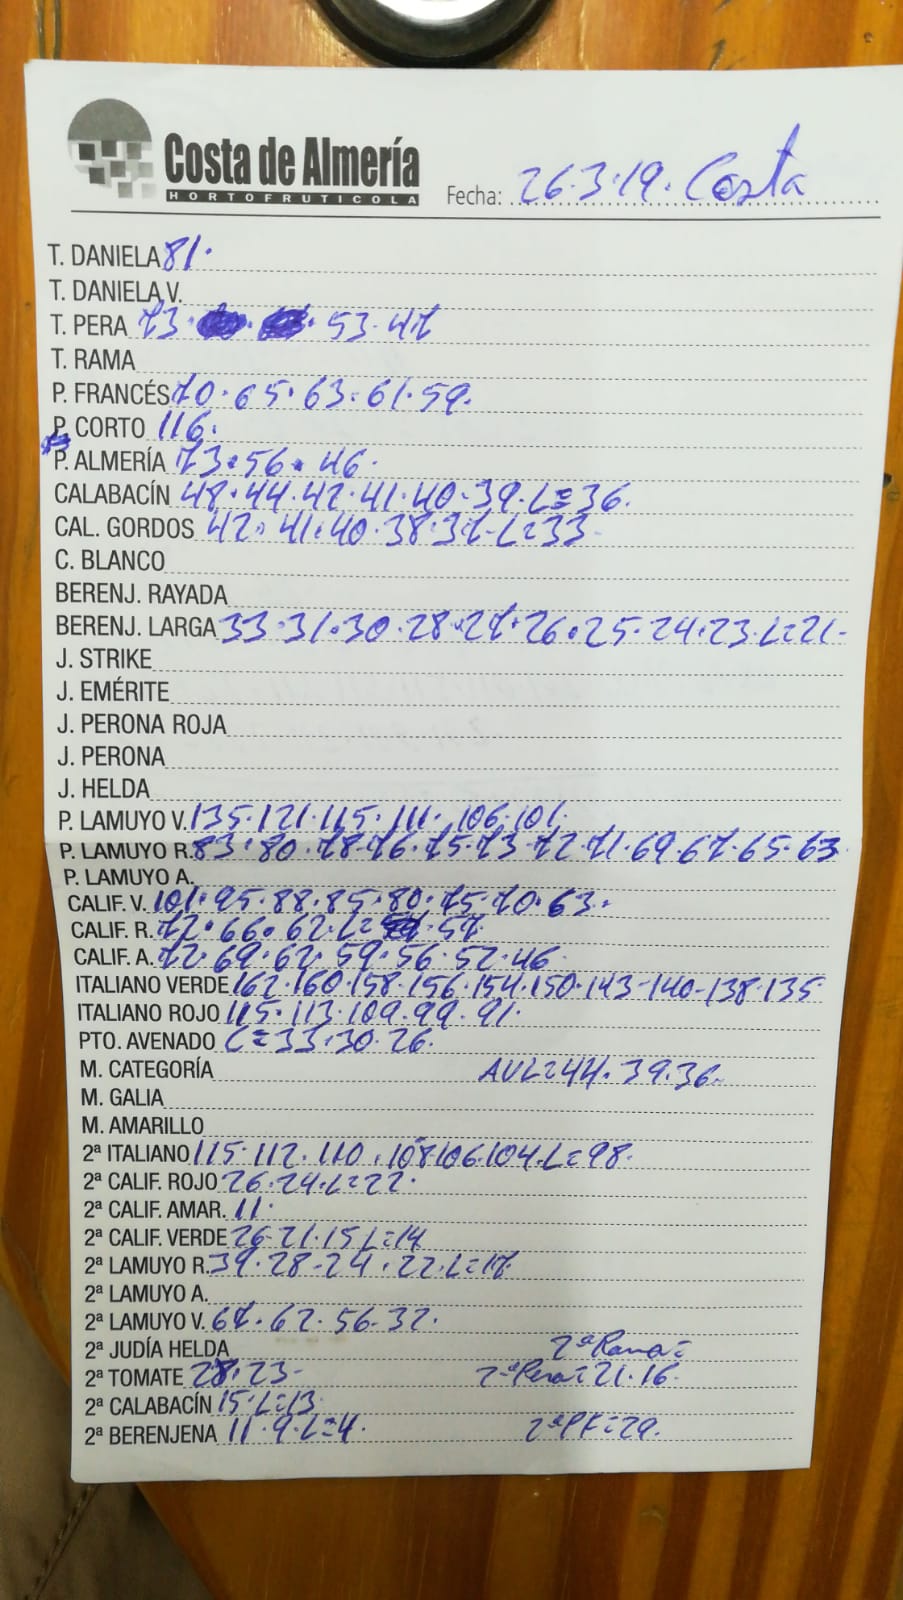 Costa de Almería
HORTOFRUTICOLA
Fecha: 26.3.19. Costa
T. DANIELA 81.
T. DANELA V.
T. PERA 73. 53.47
T. RAMA
P. FRANCÉS 70.65.63.61.59.
P. CORTO 116.
P. ALMERÍA 73.56.46.
CALABACÍN 48.44.42.41.40.39.L=36.
CAL. GORDOS 42.41.40.38.37-L=33-
C. BLANCO
BERENJ. RAYADA
BERENJ. LARGA 33.31.30.28.27.26.25.24.23.L=21-
J. STRIKE
J. EMÉRITE
J. PERONA ROJA
J. PERONA
J. HELDA
P. LAMUYO V. 135.121.115.111.106.101.
P. LAMUYO R. 83.80.78.76.75.73.72.71.69.67.65.63
P. LAMUYO A.
CALIF. V. 101.95.88.85.80.75.70.63.
CALIF. R. 72.66.62.L= 57.
CALIF. A. 72.69.62.59.56.52.46.
ITALIANO VERDE 162.160.158.156.154.150.143-140-138.135
ITALIANO ROJO 115.113.109.99.91.
PTO. AVENADO L=33.30.26.
M. CATEGORÍA AVL=44.39.36.
M. GALIA
M. AMARILLO
2ª ITALIANO 115.112.110.108.106.104.L=98.
2ª CALIF. ROJO 26.24.L=22.
2ª CALIF. AMAR. 11.
2ª CALIF. VERDE 26-21.15 L=14
2ª LAMUYO R. 39.28-24.22.L=17
2ª LAMUYO A.
2ª LAMUYO V. 67.62.56.32.
2ª JUDÍA HELDA 2ª Rama=
2ª TOMATE 28.23- 2ª Pera=21.16.
2ª CALABACÍN 15.L=13
2ª BERENJENA 11.9.L=4. 2ª PF=29.